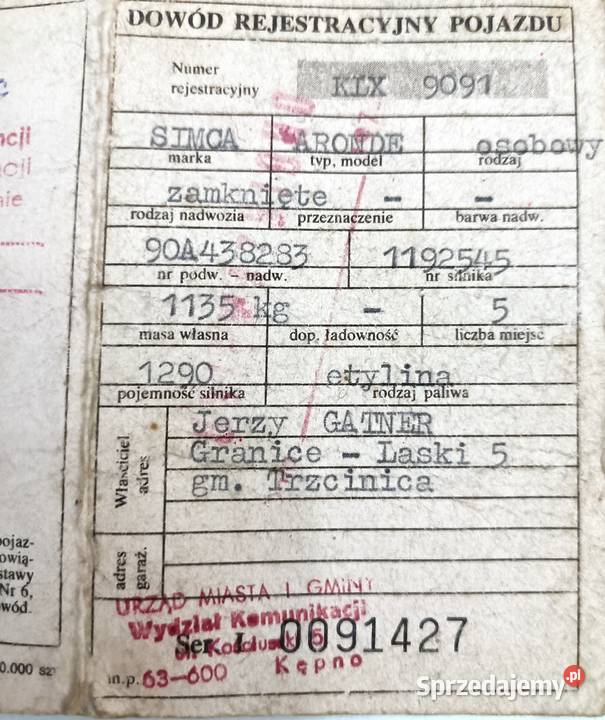 DOWÓD REJESTRACYJNY POJAZDU
Numer
rejestracyjny
KLX 9091
SIMCA ARONDE osobowy
marka typ, model rodzaj
zamknięte - -
rodzaj nadwozia przeznaczenie barwa nadw.
90A438283 1192545
nr podw. - nadw. nr silnika
1135 kg - 5
masa własna dop. ładowność liczba miejsc
1290 etylina
pojemność silnika rodzaj paliwa
Właściciel
adres
Jerzy GATNER
Granice - Laski 5
gm. Trzcinica
adres
garaż.
URZĄD MIASTA I GMINY
Wydział Komunikacji
Ser. I 0091427
63-600 Kępno
m.p.
ncji
acji
nie
pojaz-
owią-
stawy
Nr 6,
wód.
0.000
Sprzedajemy.pl